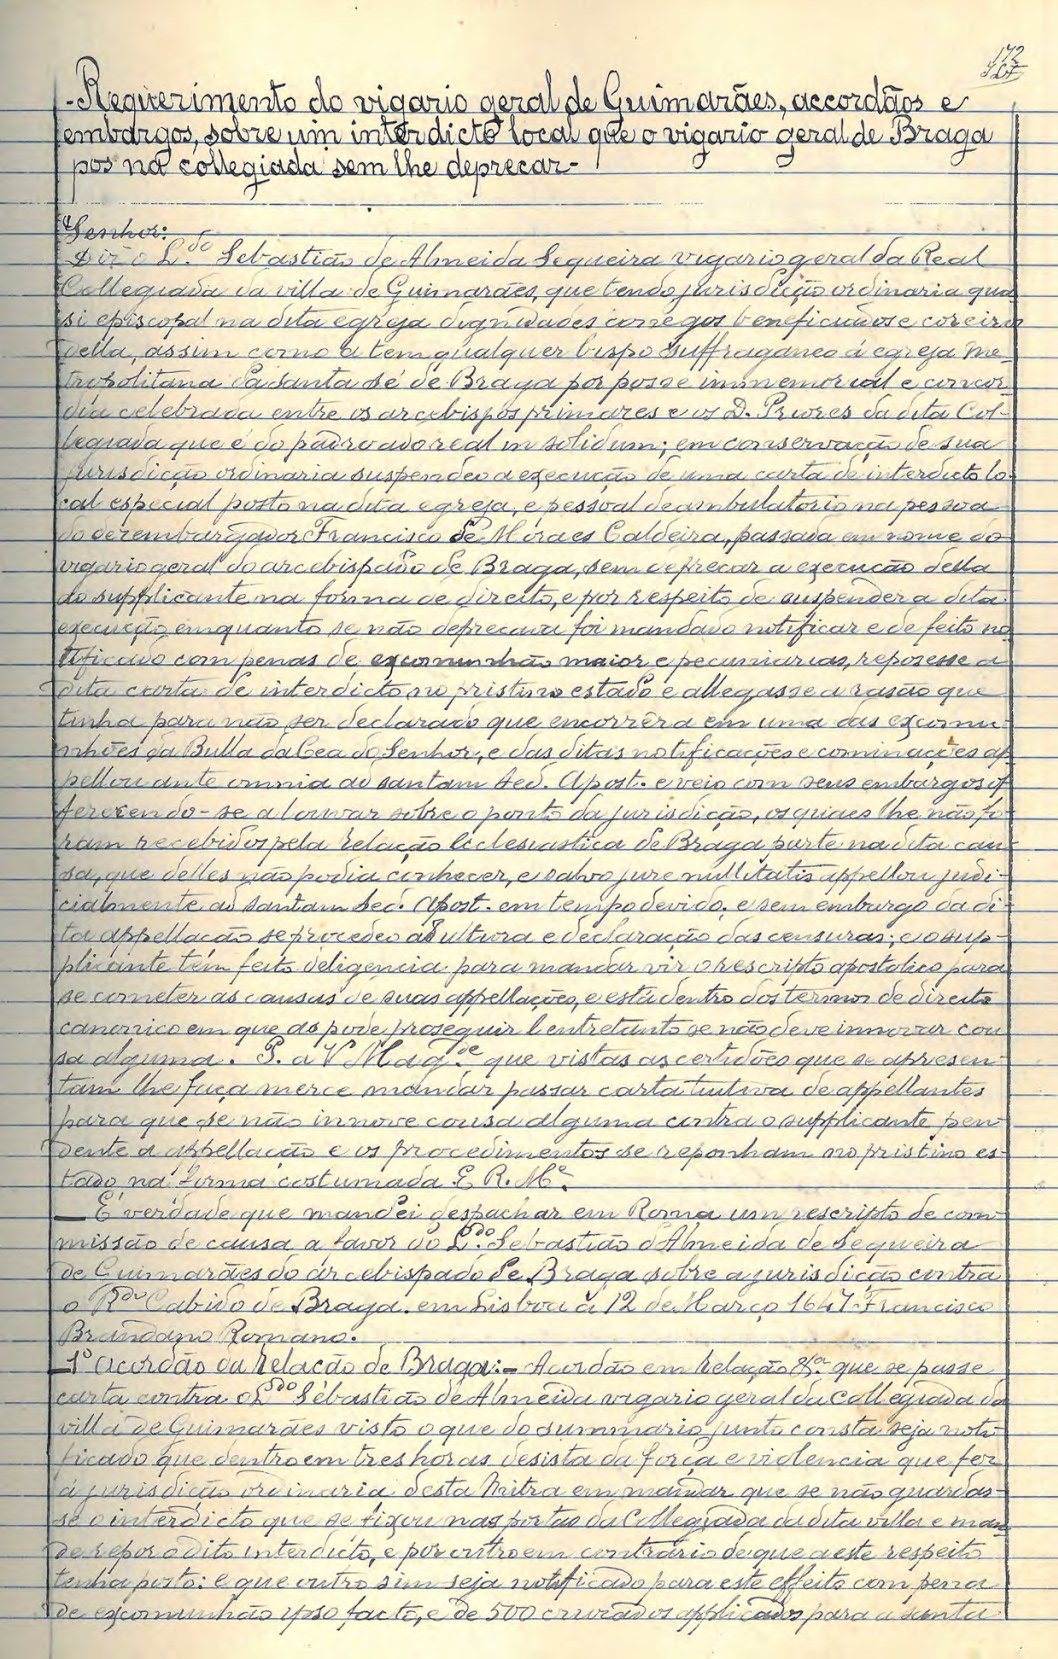 172
- Requerimento do vigario geral de Guimarães, accordãos e
embargos, sobre um interdicto local que o vigario geral de Braga
pos na collegiada sem lhe deprecar -
Senhor:
Diz o L.do Sebastião de Almeida Sequeira vigario geral da Real
Collegiada da villa de Guimarães, que tendo jurisdicção ordinaria qua
si episcopal na dita egreja dignidades conegos beneficiados e coreiros
della, assim como a tem qualquer bispo suffraganeo á egreja me-
tropolitana da santa sé de Braga por posse immemorial e concor
dia celebrada entre os arcebispos primazes e os D. Priores da dita Col-
legiada que é do padroado real in solidum; em conservação de sua
jurisdicção ordinaria suspendeo a execução de uma carta de interdicto lo-
cal especial posto na dita egreja, e pessoal deambulatorio na pessoa
do dezembargador Francisco de Moraes Caldeira, passada em nome do
vigario geral do arcebispado de Braga, sem deprecar a execução della
ao supplicante na forma de direito, e por respeito de suspender a dita
execução emquanto se não deprecava foi mandado notificar e de feito no
tificado com penas de excomunhão maior e pecuniarias, reposesse a
dita carta de interdicto no pristino estado e allegasse a rasão que
tinha para não ser declarado que encorrêra em uma das excomu-
nhões da Bulla da Cea do Senhor, e das ditas notificações e cominações ap
pellou ante omnia ad santam sed. Apost. e veio com seus embargos of
ferecendo-se a louvar sobre o ponto da jurisdicção, os quaes lhe não fo
ram recebidos pela relação Ecclesiastica de Braga parte na dita cau
sa, que delles não podia conhecer, e salvo jure nullitatis appellou judi-
cialmente ad santam sed. Apost. em tempo devido, e sem embargo da di-
ta appellação se procedeo á factura e declaração das censuras; e o sup-
plicante tem feito deligencia para mandar vir o rescripto apostolico para
se cometer as causas de suas appellações, e está dentro dos termos de direito
canonico em que as pode proseguir e entretanto se não deve innovar cou
sa alguma. P. a V. Mag.de que vistas as certidões que se apresen-
tam lhe faça merce mandar passar carta tuitiva de appellantes
para que se não innove cousa alguma contra o supplicante, pen
dente a appellação e os procedimentos se reponham no pristino es-
tado na forma costumada E. R. M.e
_ É verdade que mandei despachar em Roma um rescripto de com
missão de causa a favor do L.do Sebastião d'Almeida de Sequeira
de Guimarães do arcebispado de Braga sobre a jurisdicção contra
o R.do Cabido de Braga. em Lisboa a 12 de Março 1647. Francisco
Brandano Romano.
_ 1º acordão da relação de Braga: - Acordão em relação &.a que se passe
carta contra o L.do Sebastião de Almeida vigario geral da collegiada da
villa de Guimarães visto o que do summario junto consta seja noti
ficado que dentro em tres horas desista da força e violencia que fez
á jurisdicção ordinaria desta Mitra em mandar que se não guardas-
se o interdicto que se fixou nas portas da Collegiada da dita villa e man
de repor o dito interdicto, e por outro em contrario de que a este respeito
tenha posto: e que outro sim seja notificado para este effeito com pena
de excomunhão ipso facto, e de 500 cruzados applicados para a santa